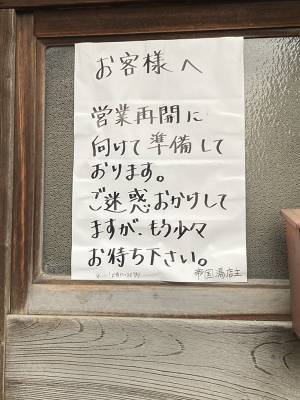 お客様へ
営業再開に
向けて準備して
おります。
ご迷惑おかけして
ますが、もう少々
お待ち下さい。
帝国湯店主